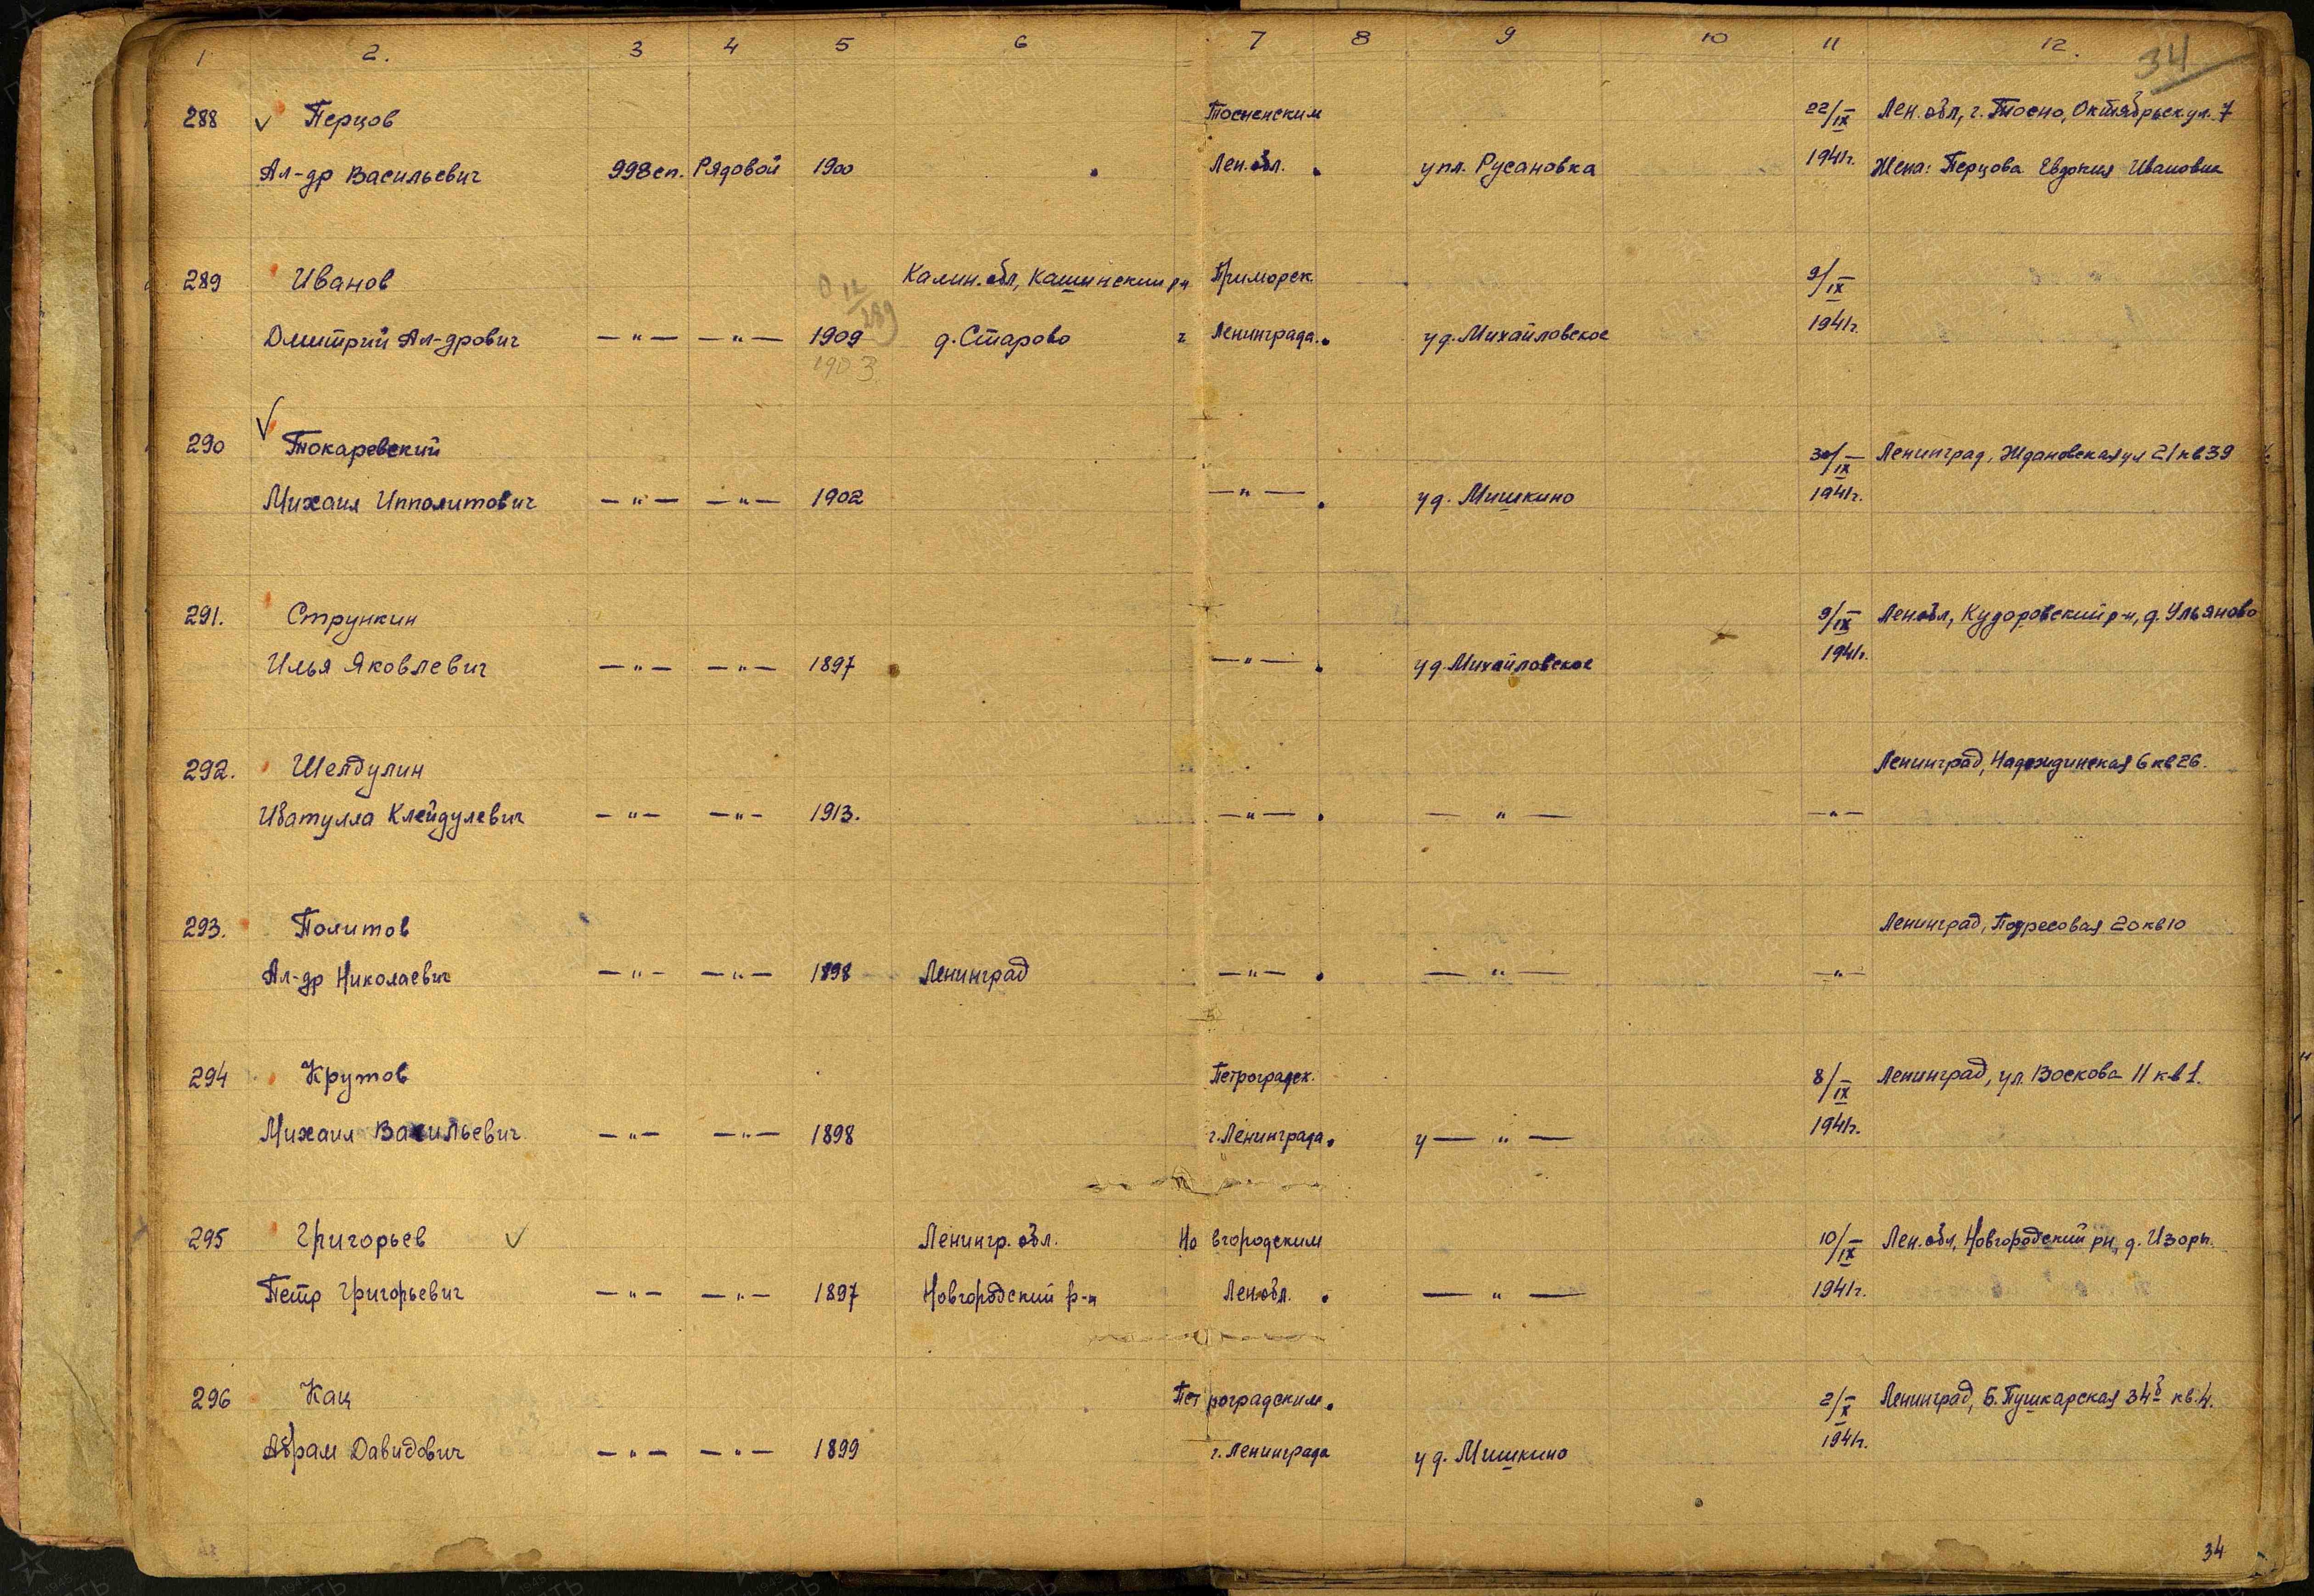 1 2. 3 4 5 6 7 8 9 10 11 12.
34
288 Перцов Тосненским 22/IX Лен. обл, г. Тосно, Октябрьск ул. 7
Ал-др Васильевич 998 сп. Рядовой 1900 Лен. обл. у пл. Русановка 1941г. Жена: Перцова Евдокия Ивановна
289 Иванов Калин. обл, Кашинский р-н Приморск. 9/IX
Дмитрий Ал-дрович —"— —"— 1909 д. Старово г Ленинграда. у д. Михайловское 1941г.
1903
290 Токаревский 30/IX Ленинград, Ждановская ул 21 кв 39
Михаил Ипполитович —"— —"— 1902 —"— у д. Мишкино 1941г.
291. Стрункин 9/IX Лен. обл, Кудоровский р-н, д. Ульяново
Илья Яковлевич —"— —"— 1897 —"— у д. Михайловское 1941г.
292. Шелдулин Ленинград, Надеждинская 6 кв 26.
Ибатулла Клейдулевич —"— —"— 1913. —"— —"— —"—
293. Политов Ленинград, Подресовая 20 кв 10
Ал-др Николаевич —"— —"— 1898 Ленинград —"— —"— —"—
294 Крутов Петроградск. 8/IX Ленинград, ул. Воскова 11 кв 1.
Михаил Васильевич —"— —"— 1898 г. Ленинграда. у —"— 1941г.
295 Григорьев Ленингр. обл. Новгородским 10/IX Лен. обл, Новгородский рн, д. Изори.
Петр Григорьевич —"— —"— 1897 Новгородский р-н Лен. обл. —"— 1941г.
296 Кац Петроградским. 2/X Ленинград, Б. Пушкарская 34б кв. 4.
Абрам Давидович —"— —"— 1899 г. Ленинграда у д. Мишкино 1941г.
34